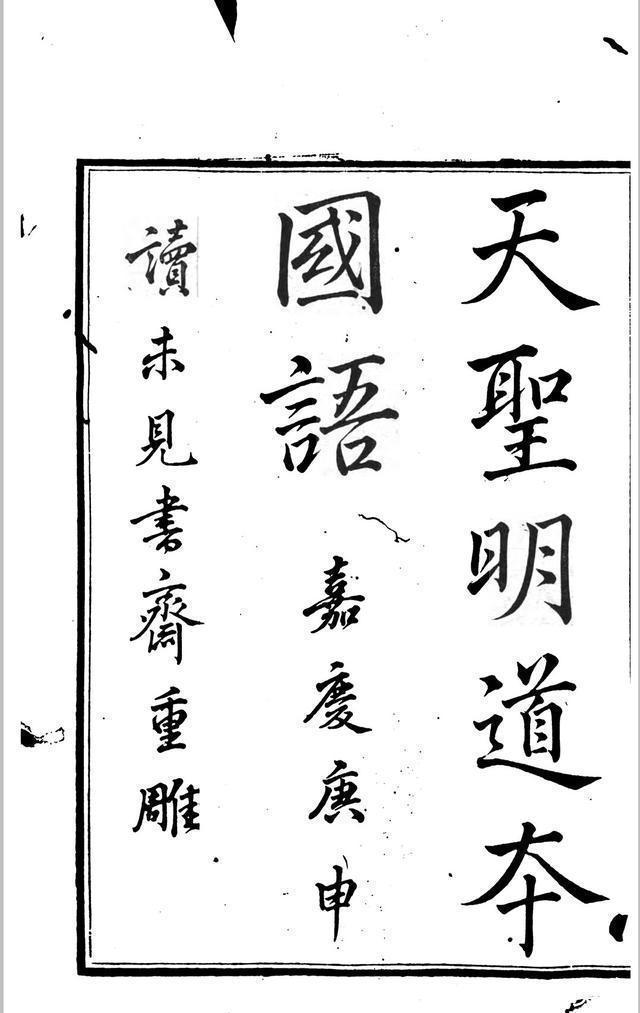 天聖明道夲
國語 嘉慶庚申
讀未見書齋重雕